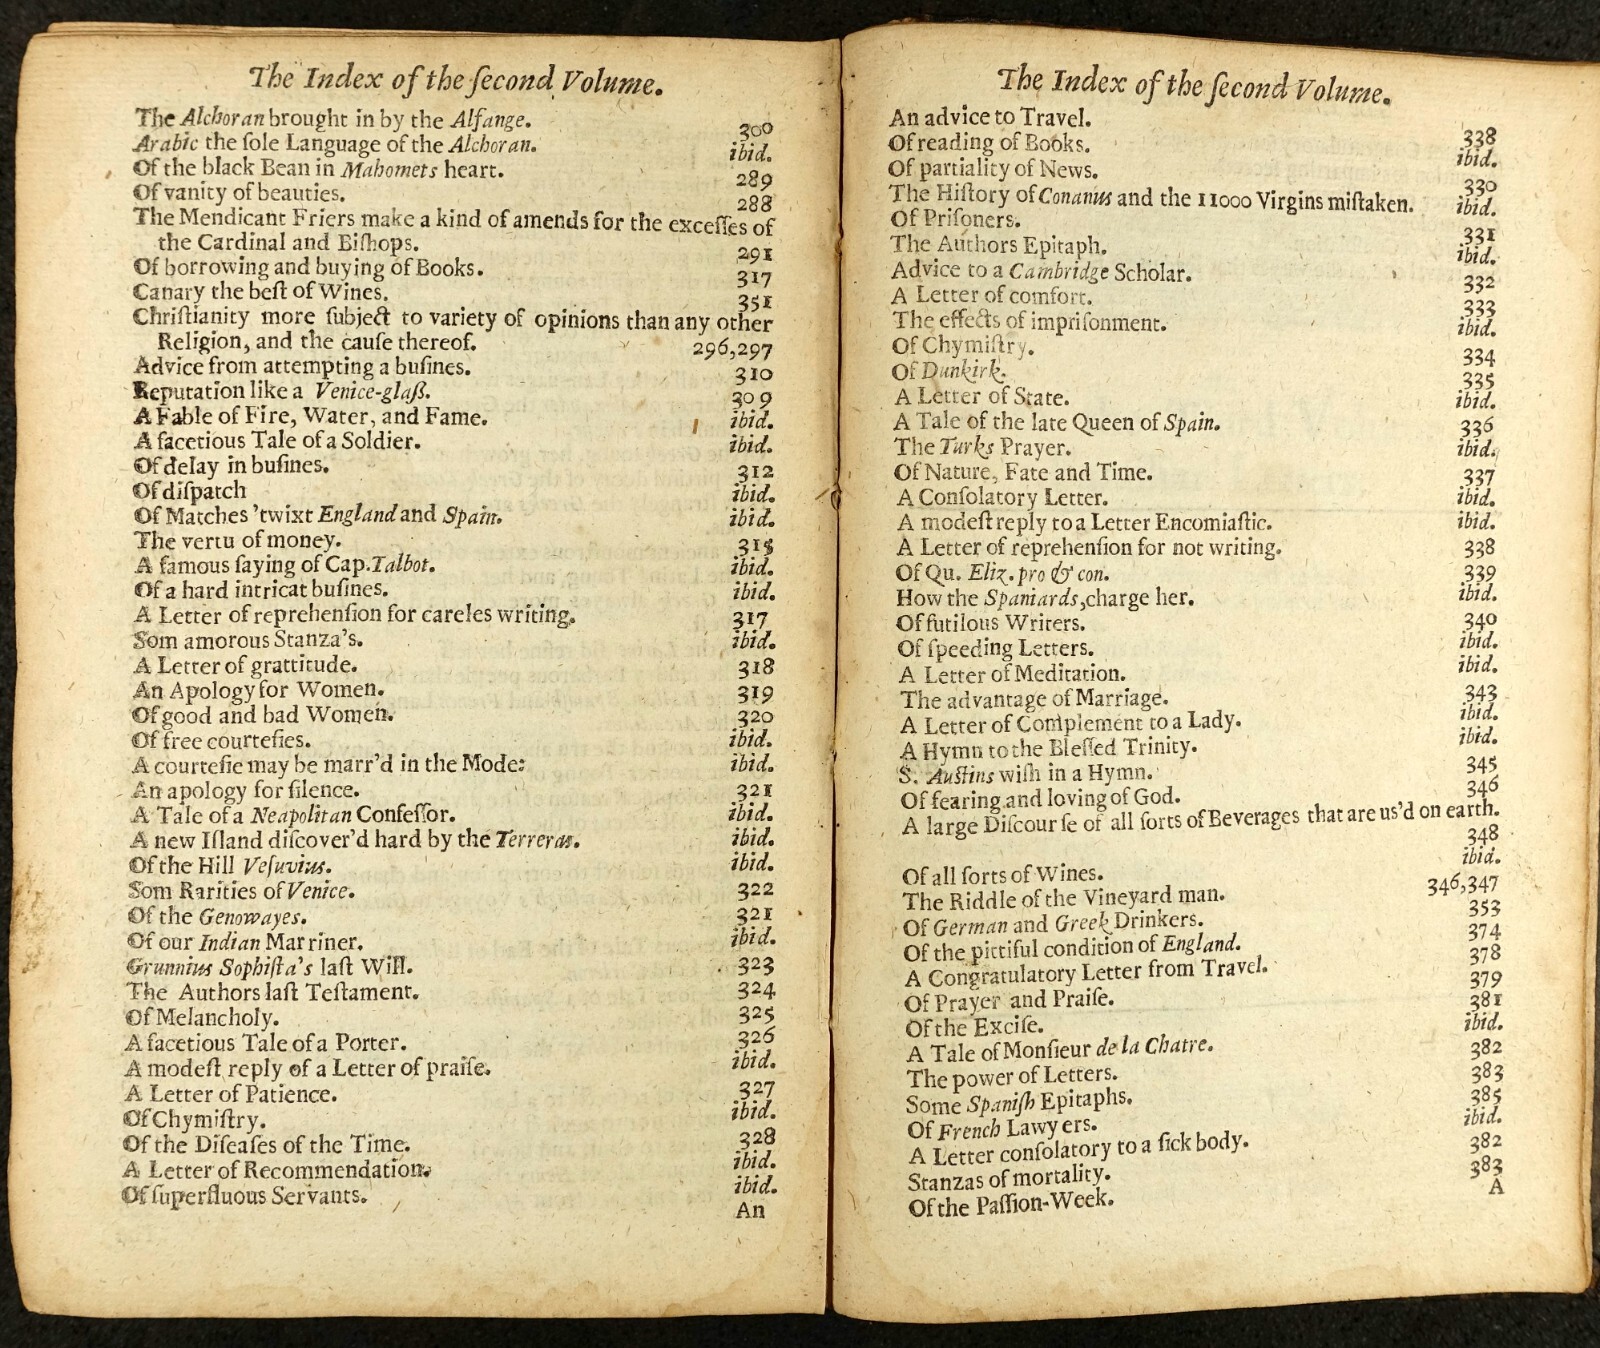 The Index of the ſecond Volume.
The Alchoran brought in by the Alfange. 300
Arabic the ſole Language of the Alchoran. ibid.
Of the black Bean in Mahomets heart. 289
Of vanity of beauties. 288
The Mendicant Friers make a kind of amends for the exceſſes of
the Cardinal and Biſhops. 291
Of borrowing and buying of Books. 317
Canary the beſt of Wines. 351
Chriſtianity more ſubject to variety of opinions than any other
Religion, and the cauſe thereof. 296,297
Advice from attempting a buſines. 310
Reputation like a Venice-glaß. 309
A Fable of Fire, Water, and Fame. ibid.
A facetious Tale of a Soldier. ibid.
Of delay in buſines. 312
Of diſpatch ibid.
Of Matches 'twixt England and Spain. ibid.
The vertu of money. 315
A famous ſaying of Cap. Talbot. ibid.
Of a hard intricat buſines. ibid.
A Letter of reprehenſion for careles writing. 317
Som amorous Stanza's. ibid.
A Letter of grattitude. 318
An Apology for Women. 319
Of good and bad Women. 320
Of free courteſies. ibid.
A courteſie may be marr'd in the Mode: ibid.
An apology for ſilence. 321
A Tale of a Neapolitan Confeſſor. ibid.
A new Iſland diſcover'd hard by the Terreras. ibid.
Of the Hill Veſuvius. ibid.
Som Rarities of Venice. 322
Of the Genowayes. 321
Of our Indian Marriner. ibid.
Grunnius Sophiſta's laſt Will. 323
The Authors laſt Teſtament. 324
Of Melancholy. 325
A facetious Tale of a Porter. 326
A modeſt reply of a Letter of praiſe. ibid.
A Letter of Patience. 327
Of Chymiſtry. ibid.
Of the Diſeaſes of the Time. 328
A Letter of Recommendation. ibid.
Of ſuperfluous Servants. ibid.
An
The Index of the ſecond Volume.
An advice to Travel. 338
Of reading of Books. ibid.
Of partiality of News. 330
The Hiſtory of Conanus and the 11000 Virgins miſtaken. ibid.
Of Priſoners. 331
The Authors Epitaph. ibid.
Advice to a Cambridge Scholar. 332
A Letter of comfort. 333
The effects of impriſonment. ibid.
Of Chymiſtry. 334
Of Dunkirk. 335
A Letter of State. ibid.
A Tale of the late Queen of Spain. 336
The Turks Prayer. ibid.
Of Nature, Fate and Time. 337
A Conſolatory Letter. ibid.
A modeſt reply to a Letter Encomiaſtic. ibid.
A Letter of reprehenſion for not writing. 338
Of Qu. Eliz. pro & con. 339
How the Spaniards,charge her. ibid.
Of futilous Writers. 340
Of ſpeeding Letters. ibid.
A Letter of Meditation. ibid.
The advantage of Marriage. 343
A Letter of Complement to a Lady. ibid.
A Hymn to the Bleſſed Trinity. ibid.
S. Auſtins wiſh in a Hymn. 345
Of fearing and loving of God. 346
A large Diſcourſe of all ſorts of Beverages that are us'd on earth.
348
ibid.
Of all ſorts of Wines. 346,347
The Riddle of the Vineyard man. 353
Of German and Greek Drinkers. 374
Of the pittiful condition of England. 378
A Congratulatory Letter from Travel. 379
Of Prayer and Praiſe. 381
Of the Exciſe. ibid.
A Tale of Monſieur de la Chatre. 382
The power of Letters. 383
Some Spaniſh Epitaphs. 385
Of French Lawyers. ibid.
A Letter conſolatory to a ſick body. 382
Stanzas of mortality. 383
Of the Paſſion-Week.
A